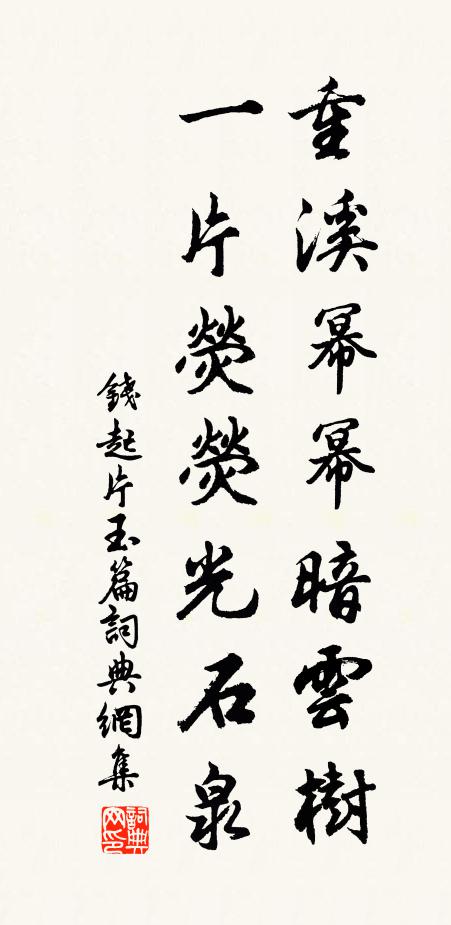 重溪幂幂暗雲樹
一片熒熒光石泉
錢起片玉篇詞典網集
詞典网印